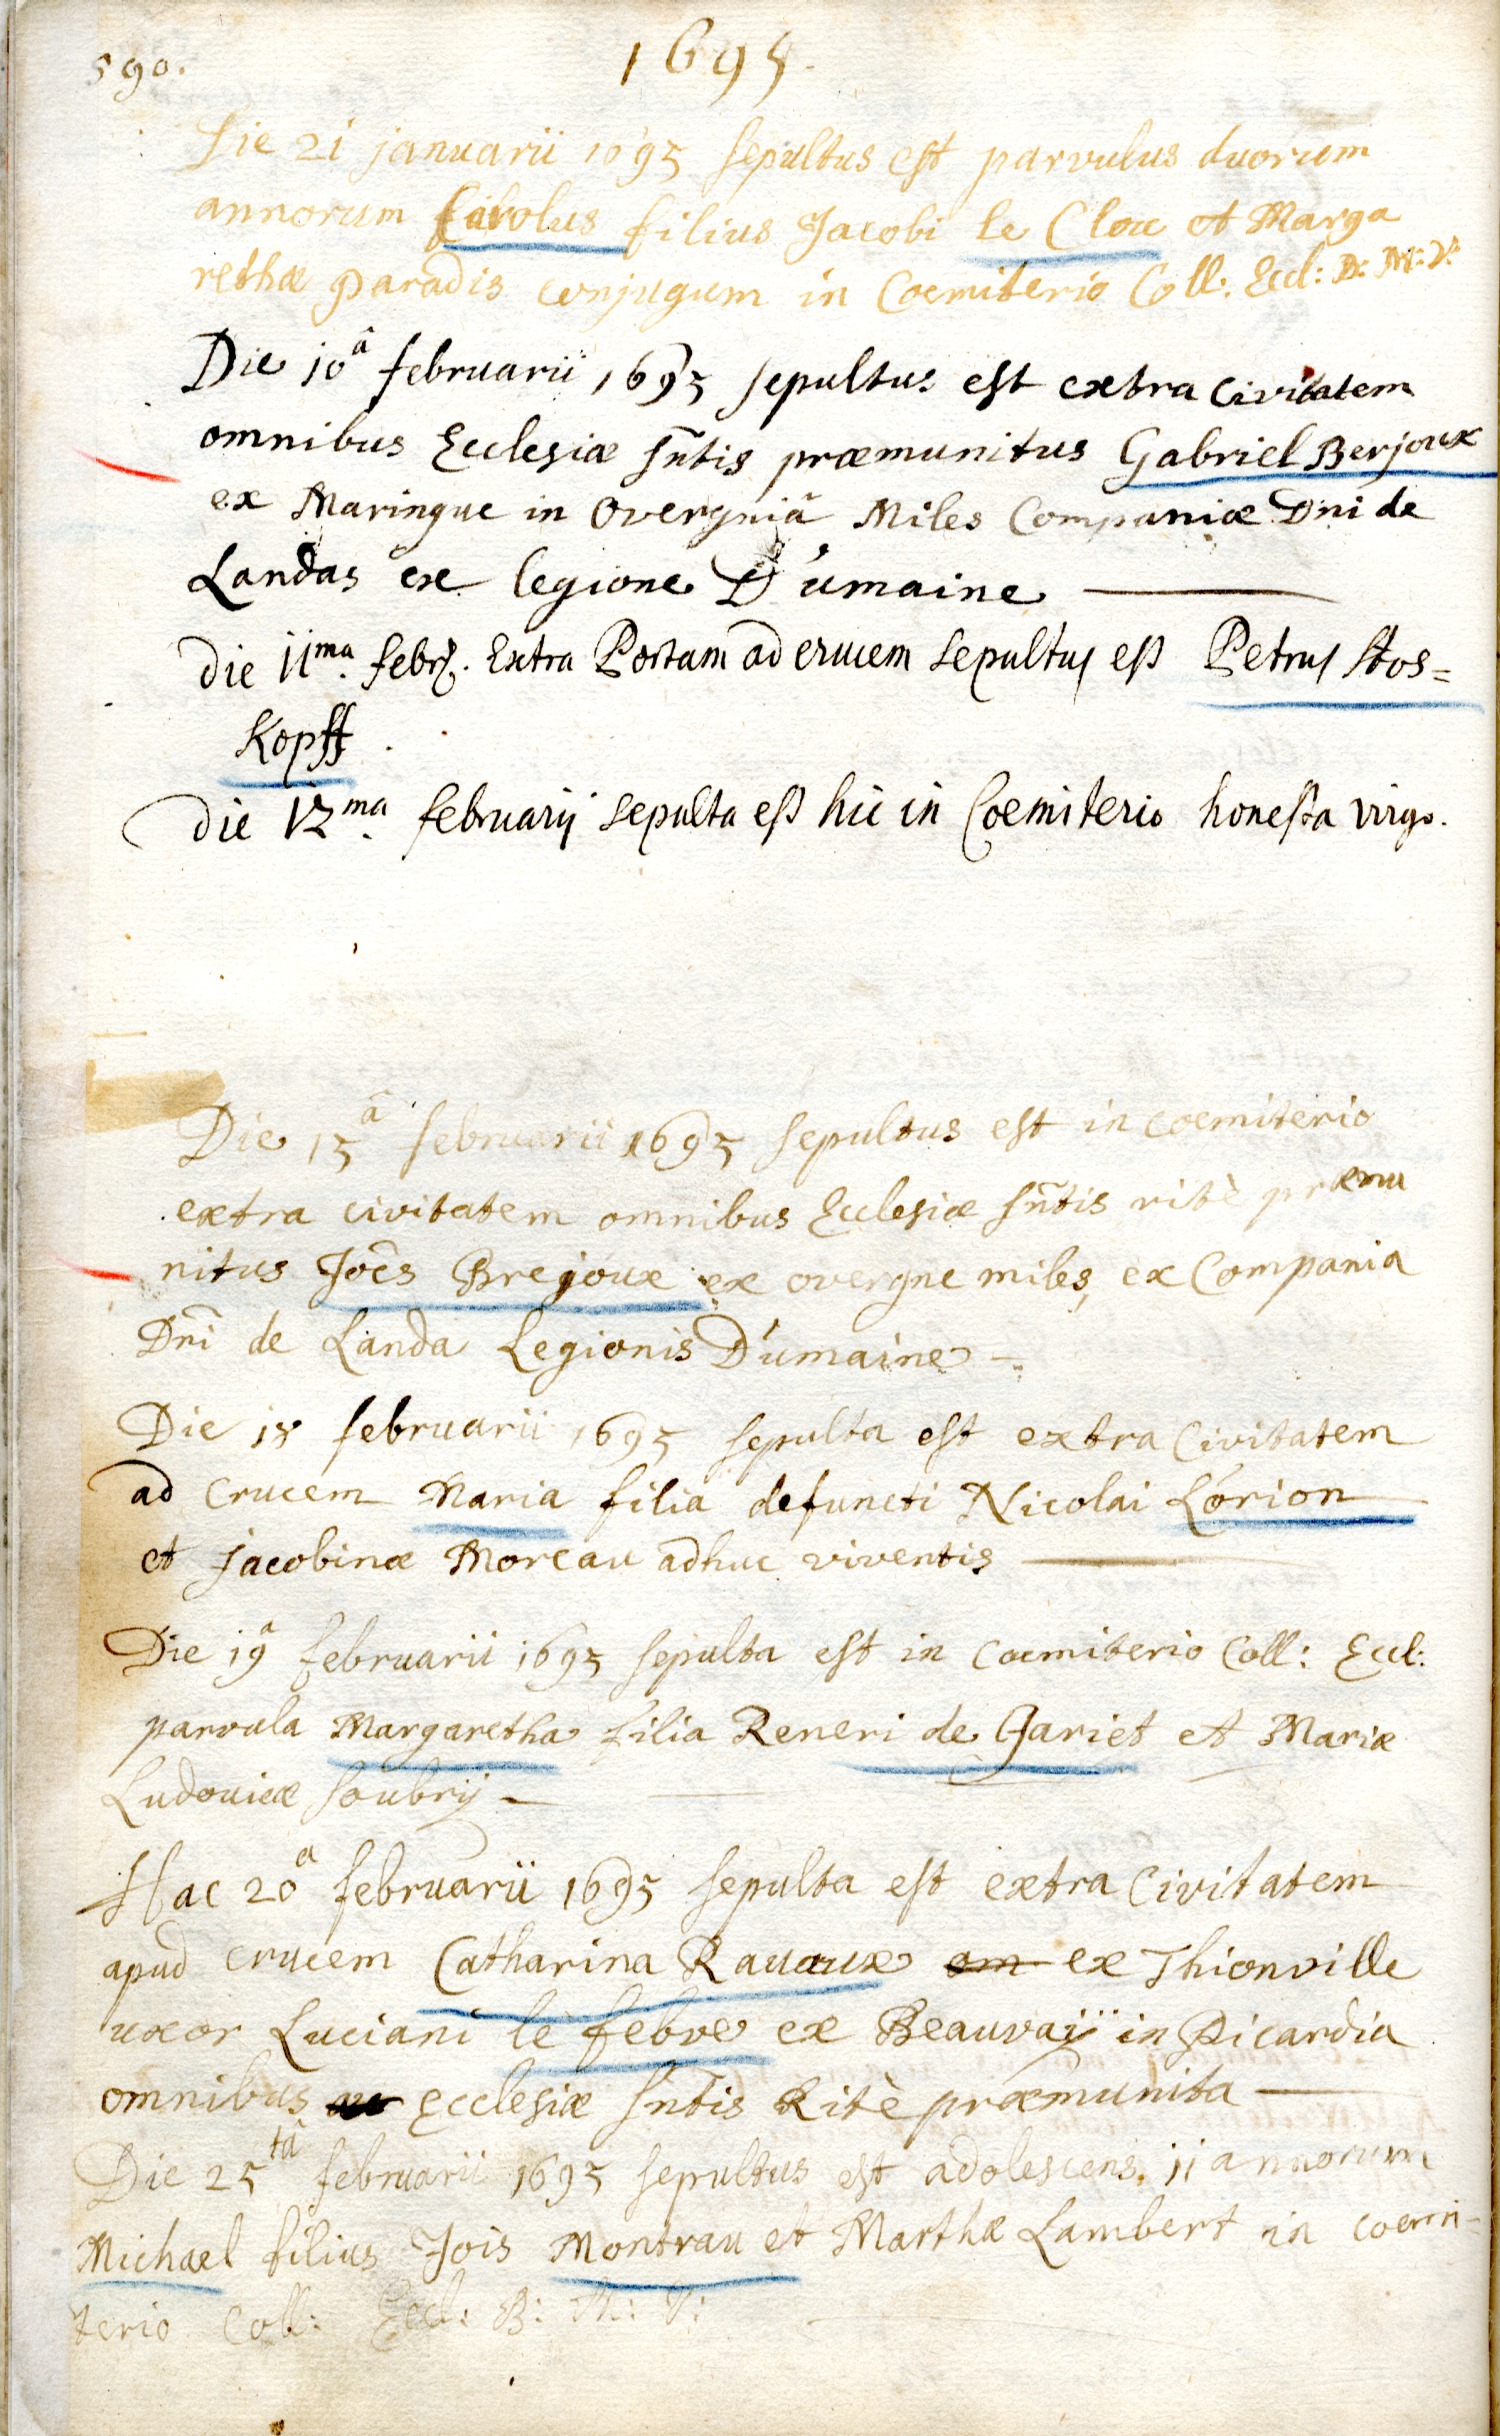 590.
1695.
Die 21 januarii 1695 sepultus est parvulus duorum
annorum Carolus filius Jacobi le Clou et Marga
rethæ paradis conjugum in Coemiterio Coll: Eccl: B: M: V:
Die 10â februarii 1695 sepultus est extra Civitatem
omnibus Ecclesiæ Sñtis præmunitus Gabriel Berjoux
ex Maringue in Overgniâ Miles Companiæ Dni de
Landas ex legione D'umaine
die 11ma. febr. Extra Portam ad crucem sepultus est Petrus Stos=
kopff.
die 12ma. februarij sepulta est hic in Coemiterio honesta virgo.
Die 15â februarii 1695 sepultus est in coemiterio
extra civitatem omnibus Ecclesiæ Sñtis ritè præmu
nitus Joês Brejoux ex overgne miles, ex Compania
Dñi de Landa Legionis D'umaine
Die 18 februarii 1695 sepulta est extra Civitatem
ad Crucem Maria filia defuncti Nicolai Lórion
et Jacobinæ Moreau adhuc viventis
Die 19â februarii 1695 sepulta est in Coemiterio Coll: Eccl:
parvula Margaretha filia Reneri de Gariet et Mariæ
Ludovicæ Soubrij
Hac 20a februarii 1695 sepulta est extra Civitatem
apud crucem Catharina Ravaux om ex Thionville
uxor Luciani le febve ex Beauvaÿ in Picardia
omnibus Ecclesiæ Sntis Ritè præmunita
Die 25tâ februarii 1695 sepultus est adolescens 11 annorum
Michael filius Jois Montrau et Marthæ Lambert in coemi-
terio Coll: Eccl: B: M: V: